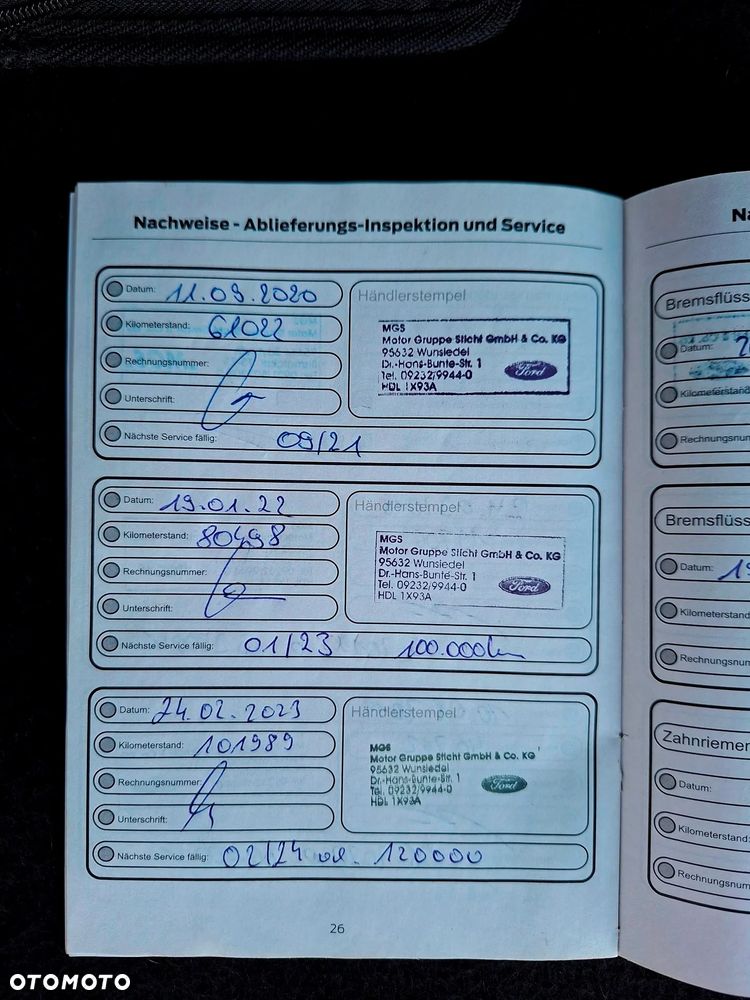 Nachweise - Ablieferungs-Inspektion und Service
Datum: 11.09.2020
Kilometerstand: 61022
Rechnungsnummer:
Unterschrift:
Nächste Service fällig: 09/21
Händlerstempel
MGS
Motor Gruppe Sticht GmbH & Co. KG
95632 Wunsiedel
Dr.-Hans-Bunte-Str. 1
Tel. 09232/9944-0
HDL 1X93A
Ford
Datum: 19.01.22
Kilometerstand: 80498
Rechnungsnummer:
Unterschrift:
Nächste Service fällig: 01/23 100.000km
Händlerstempel
MGS
Motor Gruppe Sticht GmbH & Co. KG
95632 Wunsiedel
Dr.-Hans-Bunte-Str. 1
Tel. 09232/9944-0
HDL 1X93A
Ford
Datum: 24.02.2023
Kilometerstand: 101989
Rechnungsnummer:
Unterschrift:
Nächste Service fällig: 02/24 od. 120000
Händlerstempel
MGS
Motor Gruppe Sticht GmbH & Co. KG
95632 Wunsiedel
Dr.-Hans-Bunte-Str. 1
Tel. 09232/9944-0
HDL 1X93A
Ford
26
Na
Bremsflüss
Datum: 2
Kilometerstand
Rechnungsnum
Bremsflüss
Datum: 19
Kilometerstand
Rechnungsnum
Zahnriemen
Datum:
Kilometerstand:
Rechnungsnum
OTOMOTO